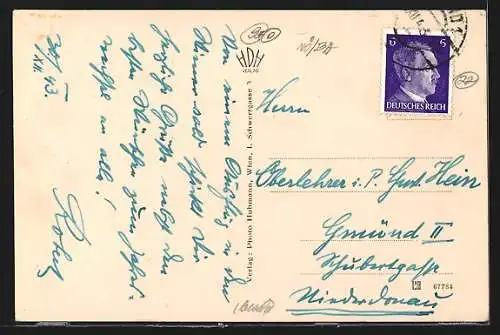 30./XII. 43.
Von einem Ausflug in den
Wienerwald schickt Dir
herzliche Grüße nebst den
besten Wünschen zum Jahres-
wechsel an alle!
HDH
VERLAG
Verlag: Photo Hubmann, Wien, I. Schwertgasse 3
6 6
DEUTSCHES REICH
Herrn
Oberlehrer i. P. Gust. Hein
Gmünd II
Schubertgasse
Niederdonau
67784